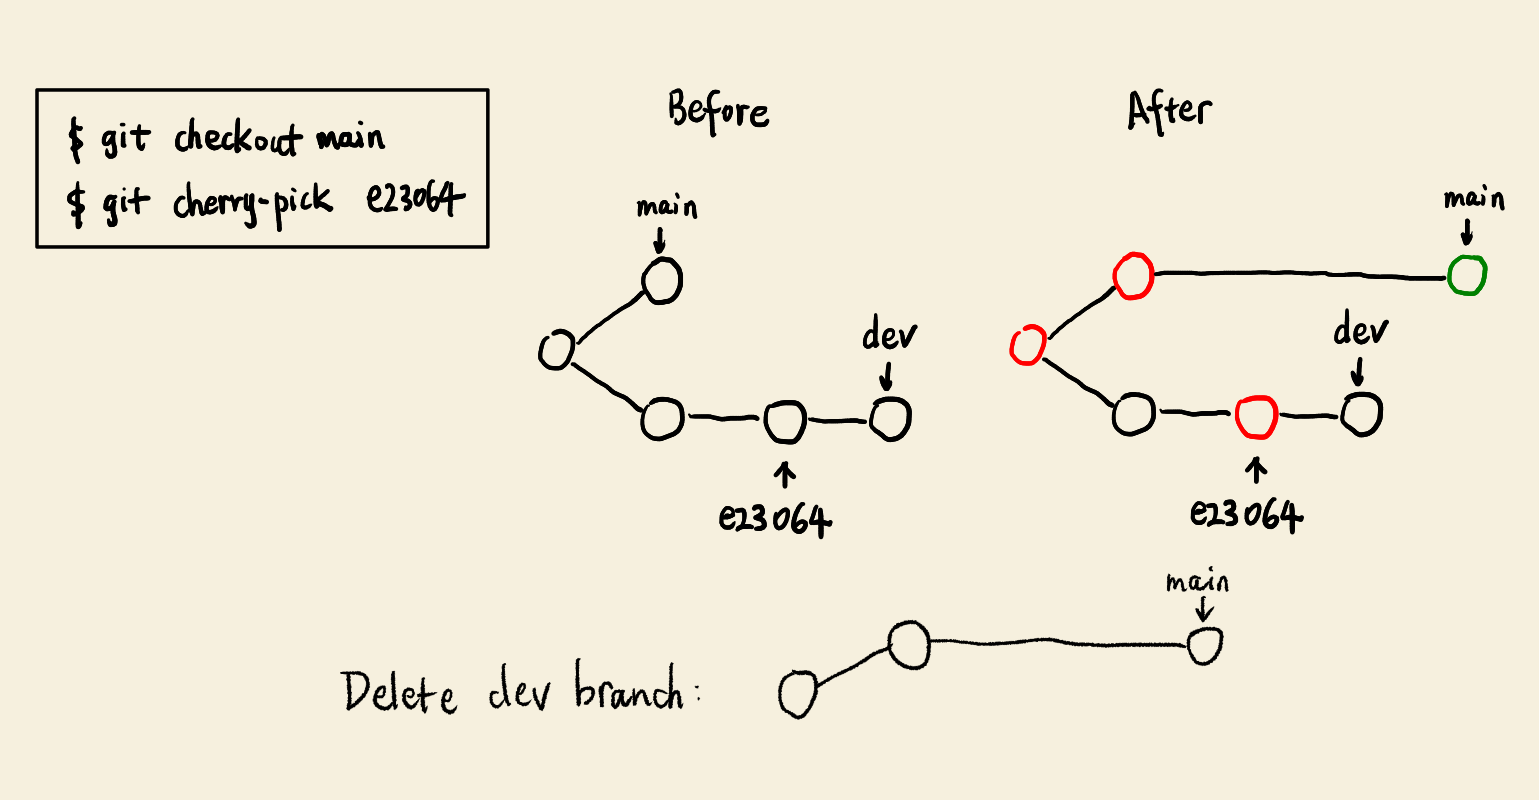 $ git checkout main
$ git cherry-pick e23064
Before
main
dev
e23064
After
main
dev
e23064
main
Delete dev branch: